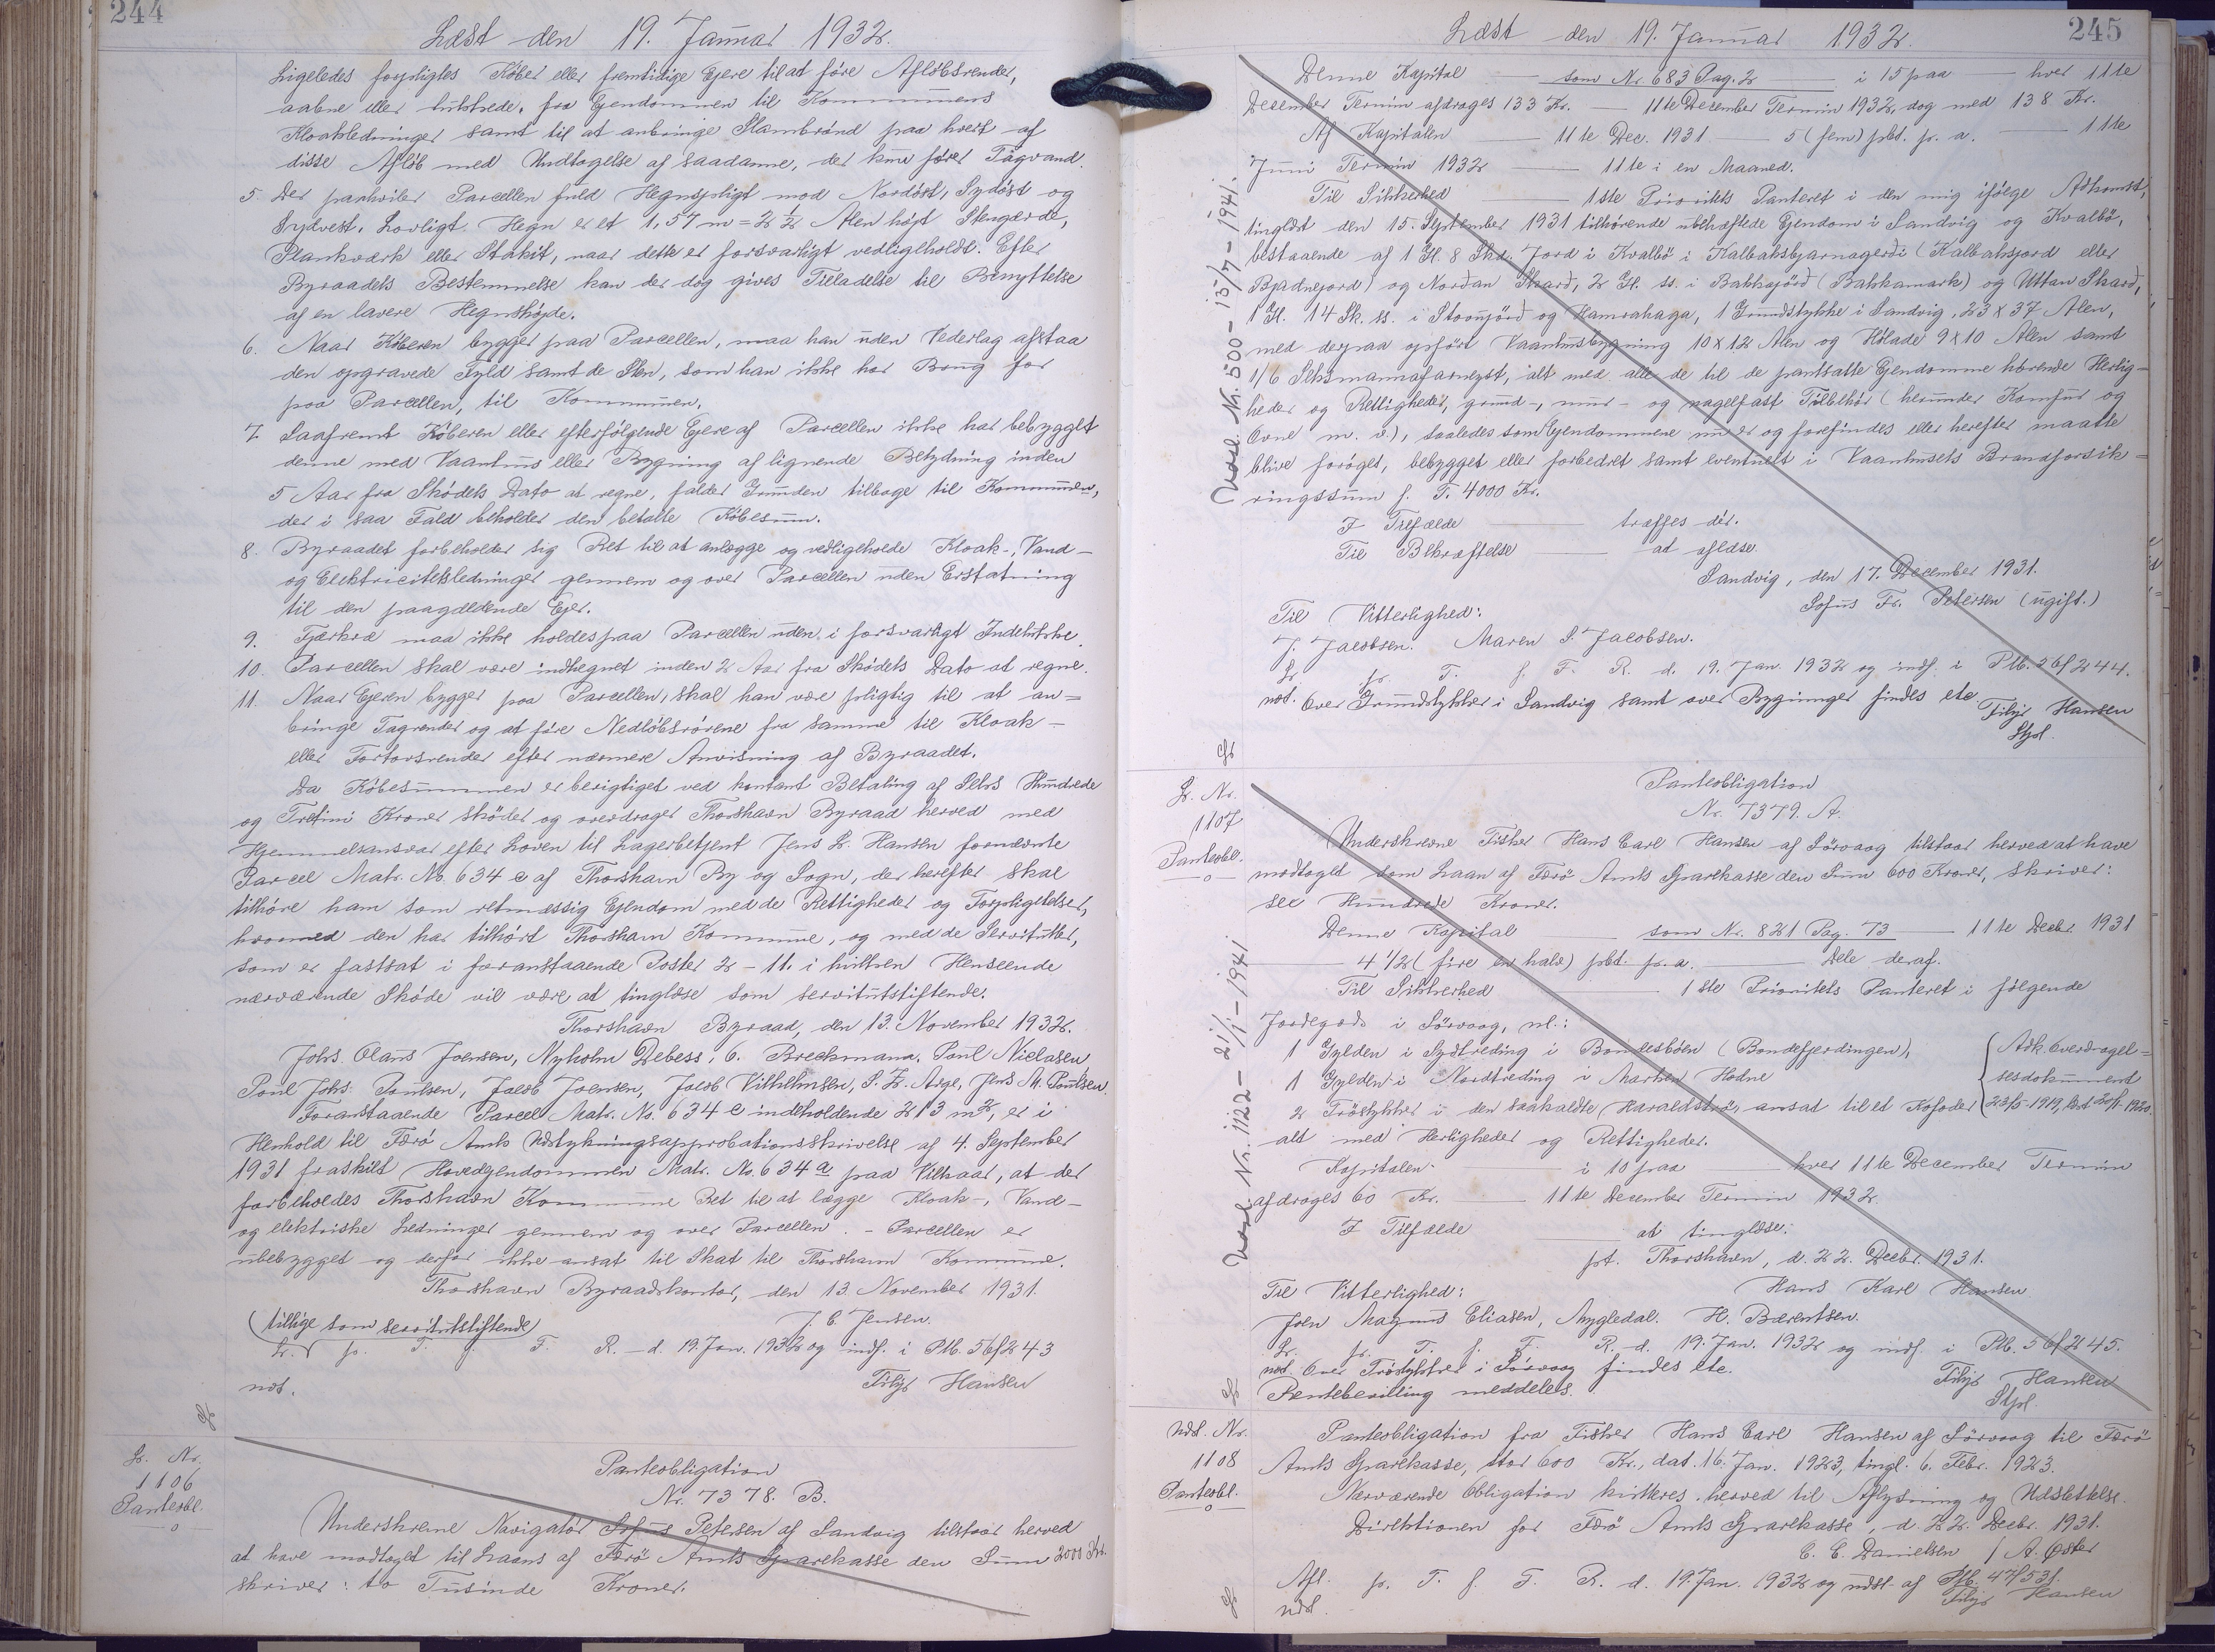 244
Læst den 19. Januar 1932.
Ligeledes forpligtes Køber eller fremtidige Ejere til at føre Afløbsrender,
aabne eller lukkede, fra Ejendommen til Kommunens
Kloakledninger samt til at anbringe Slambrønd paa hvert af
disse Afløb med Undtagelse af saadanne, der kun fører Tagvand.
5. Der paahviler Parcellen fuld Hegnspligt mod Nordøst, Sydøst og
Sydvest. Lovligt Hegn er et 1,57 m = 2 1/2 Alen højt Stengærde,
Plankværk eller Stakit, naar dette er forsvarligt vedligeholdt. Efter
Byraadets Bestemmelse kan der dog gives Tilladelse til Benyttelse
af en lavere Hegnshøjde.
6. Naar Køberen bygger paa Parcellen, maa han uden Vederlag afstaa
den opgravede Fyld samt de Sten, som han ikke har Brug for
paa Parcellen, til Kommunen.
7. Saafremt Køberen eller efterfølgende Ejere af Parcellen ikke har bebygget
denne med Vaanhus eller Bygning af lignende Betydning inden
5 Aar fra Skødets Dato at regne, falder Grunden tilbage til Kommunen,
der i saa Fald beholder den betalte Købesum.
8. Byraadet forbeholder sig Ret til at anlægge og vedligeholde Kloak-, Vand-
og Elektricitetsledninger gennem og over Parcellen uden Erstatning
til den paagældende Ejer.
9. Fjerkræ maa ikke holdes paa Parcellen uden i forsvarligt Indelukke.
10. Parcellen skal være indhegnet inden 2 Aar fra Skødets Dato at regne.
11. Naar Ejeren bygger paa Parcellen, skal han være pligtig til at an=
bringe Tagrender og at føre Nedløbsrørene fra samme til Kloak-
eller Fortovsrender efter nærmere Anvisning af Byraadet.
Da Købesummen er berigtiget ved kontant Betaling af Seks Hundrede
og Tretini Kroner skøder og overdrager Thorshavn Byraad herved med
Hjemmelsansvar efter Loven til Lagerbetjent Jens L. Hansen fornævnte
Parcel Matr. No. 634 e af Thorshavn By og Sogn, der herefter skal
tilhøre ham som retmæssig Ejendom med de Rettigheder og Forpligtelser,
hvormed den har tilhørt Thorshavn Kommune, og med de Servitutter,
som er fastsat i foranstaaende Poster 2 - 11. i hvilken Henseende
nærværende Skøde vil være at tinglæse som servitutstiftende.
Thorshavn Byraad, den 13. November 1932.
Johs. Olaus Joensen, Nyholm Debess, C. Breckmann, Poul Niclasen
Poul Johs. Poulsen, Jacob Joensen, Jacob Vilhelmsen, S. Z. Arge, Jens M. Poulsen
Foranstaaende Parcel Matr. No. 634 e indeholdende 213 m2, er i
Henhold til Færø Amts Udstykningsapprobationsskrivelse af 4. September
1931 fraskilt Hovedejendommen Matr. No. 634 a paa Vilkaar, at der
forbeholdes Thorshavn Kommune Ret til at lægge Kloak-, Vand-
og elektriske Ledninger gennem og over Parcellen. - Parcellen er
ubebygget og derfor ikke ansat til Skat til Thorshavn Kommune.
Thorshavn Byraadskontor, den 13. November 1931.
J. C. Jensen.
(tillige som servitutstiftende)
Lr. p. T. f. F. R. - d. 19. Jan. 1932 og indf. i Ptb. 56f243
ndt. Filip Hansen
Lr. Nr.
1106
Panteobl.
Panteobligation
Nr. 7378. B.
Underskrevne Navigatør Sofus Petersen af Sandvig tilstaar herved
at have modtaget til Laans af Færø Amts Sparekasse den Sum 2000 Kr.
skriver: to Tusinde Kroner.
245
Læst den 19. Januar 1932.
Denne Kapital — som Nr. 683 Pag. 2 — i 15 paa — hver 11te
December Termin afdrages 133 Kr. — 11te December Termin 1932, dog med 138 Kr.
Af Kapitalen — 11te Dec. 1931 — 5 (fem) pCt. p. a. — 11te
Juni Termin 1932 — 11te i en Maaned.
Til Sikkerhed — 1ste Prioritets Panteret i den mig ifølge Adkomst,
tinglæst den 15. September 1931 tilhørende ubehæftede Ejendom i Sandvig og Kvalbø,
bestaaende af 1 Gl. 8 Sk. Jord i Kvalbø i Kalbaksbjarnagerði (Kalbaksjord eller
Bjadnejord) og Norðan Skarð, 2 Gl. ss. i Bakkajørð (Bakkamark) og Uttan Skarð,
1 Gl. 14 Sk. ss. i Stovujørð og Hamrahaga, 1 Grundstykke i Sandvig, 23 x 37 Alen,
med derpaa opført Vaanhusbygning 10 x 12 Alen og Hølade 9 x 10 Alen samt
1/6 Seksmannafarneyst, alt med alle de til de pantsatte Ejendomme hørende Herlig-
heder og Rettigheder, grund-, mur- og nagelfast Tilbehør (herunder Komfur og
Ovne m. v.), saaledes som Ejendommene nu er og forefindes eller herefter maatte
blive forøget, bebygget eller forbedret samt eventuelt i Vaanhusets Brandforsik=
ringssum f. T. 4000 Kr.
I Tilfælde — træffes dér.
Til Bekræftelse — at aflæse.
Sandvig, den 17. December 1931.
Sofus Fr. Petersen (ugift.)
Til Vitterlighed:
J. Jacobsen. Maren S. Jacobsen.
Lr. p. T. f. F. R. d. 19. Jan. 1932 og indf. i Ptb. 56f244.
ndt. Over Grundstykker i Sandvig samt over Bygninger findes ete
Filip Hansen
Stpl.
Udsl. Nr. 500 - 15/7 - 1941.
Lr. Nr.
1107
Panteobl.
Panteobligation
Nr. 7379. A.
Underskrevne Fisker Hans Carl Hansen af Sörvaag tilstaar herved at have
modtaget som Laan af Færö Amts Sparekasse den Sum 600 Kroner, skriver:
sex Hundrede Kroner.
Denne Kapital — som Nr. 821 Pag. 73 — 11te Decbr 1931
— 4 1/2 (fire en halv) pCt. p. a. — Dele deraf.
Til Sikkerhed — 1ste Prioritets Panteret i følgende
Jordegods i Sörvaag, nl.:
1 Gylden i Sydtreding i Bondesbøen (Bondefjerdingen),
1 Gylden i Nordtreding i Marken Hodne
2 Tröstykker i den saakaldte Haraldstrø, ansat til et Kofoder
Adk. Overdragel=
sesdokument
23/5-1919, læst 20/1-1920.
alt med Herligheder og Rettigheder.
Kapitalen — i 10 paa — hver 11te December Termin
afdrages 60 Kr. — 11te December Termin 1932.
I Tilfælde — at tinglæse.
pt. Thorshavn, d. 22. Decbr. 1931.
Hans Karl Hansen
Til Vitterlighed:
Joen Magnus Eliasen, Mygledal. H. Bærentsen.
Lr. p. T. f. F. R. d. 19. Jan. 1932 og indf. i Ptb. 56f245.
ndt. Over Tröstykker i Sörvaag findes ete.
Rentebevilling meddeles.
Filip Hansen
Stpl.
Udsl. Nr. 1122 - 21/1 - 1941
Udsl. Nr.
1108
Panteobl.
Panteobligation fra Fisker Hans Carl Hansen af Sörvaag til Færö
Amts Sparekasse, stor 600 Kr., dat. 16. Jan. 1923, tingl. 6. Febr. 1923.
Nærværende Obligation kvitteres herved til Aflysning og Udslettelse.
Direktionen for Færö Amts Sparekasse, d. 22. Decbr. 1931.
C. C. Danielsen / A. Øster
Afl. p. T. f. F. R. d. 19. Jan. 1932 og udsl. af Ptb. 47f531.
udsl. Filip Hansen